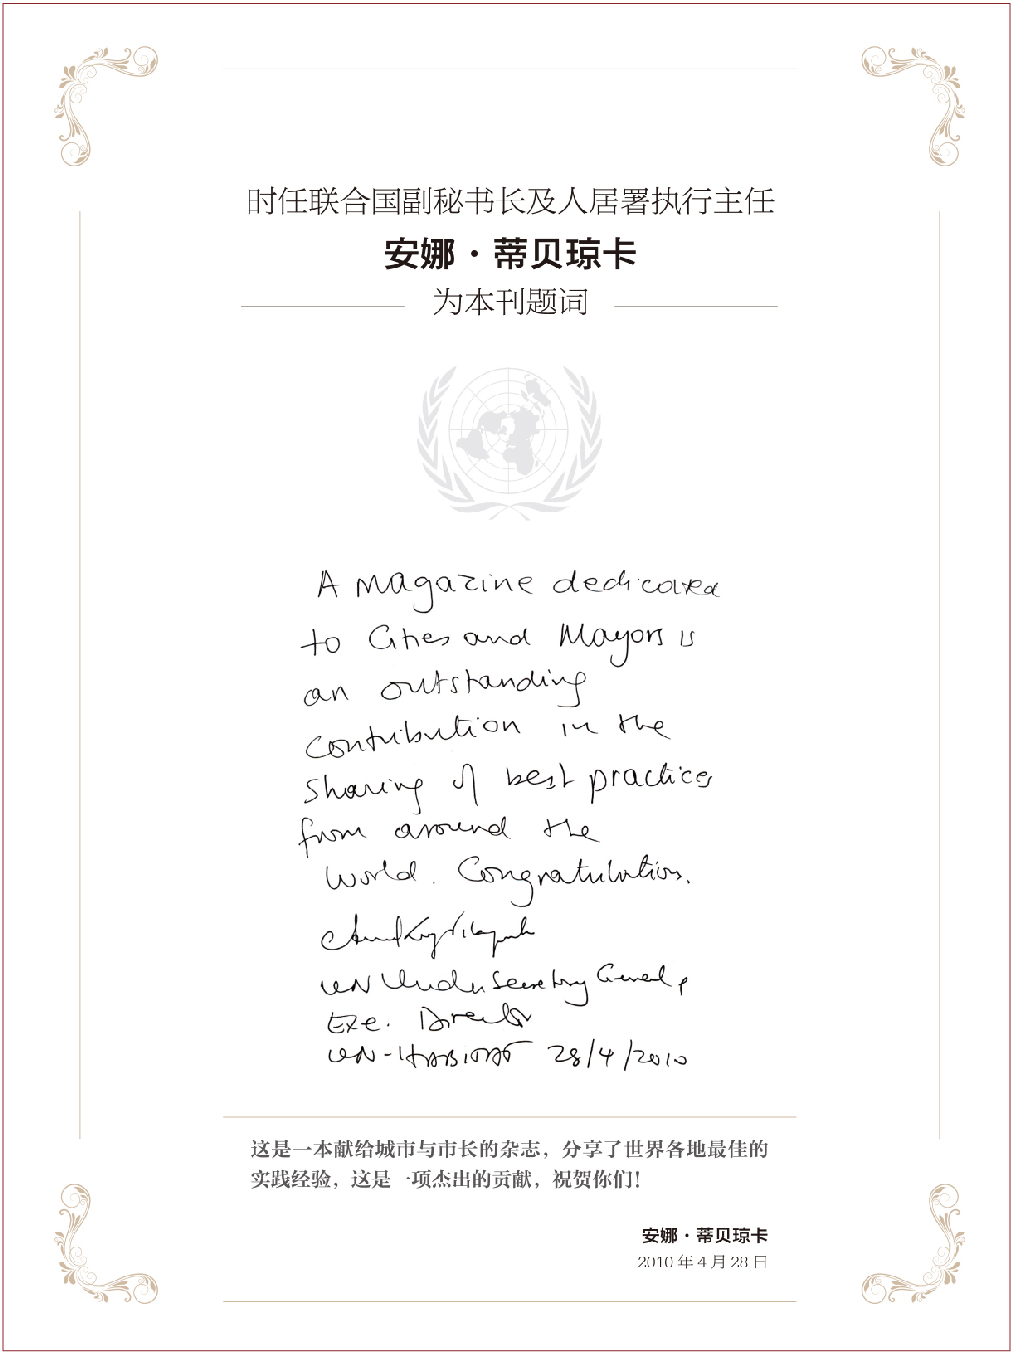 时任联合国副秘书长及人居署执行主任
安娜·蒂贝琼卡
为本刊题词
A magazine dedicated
to Cities and Mayors is
an outstanding
contribution in the
sharing of best practices
from around the
world. Congratulation.
UN Under Secretary General,
Exe. Director
UN-HABITAT 28/4/2010
这是一本献给城市与市长的杂志，分享了世界各地最佳的
实践经验，这是一项杰出的贡献，祝贺你们！
安娜·蒂贝琼卡
2010年4月28日